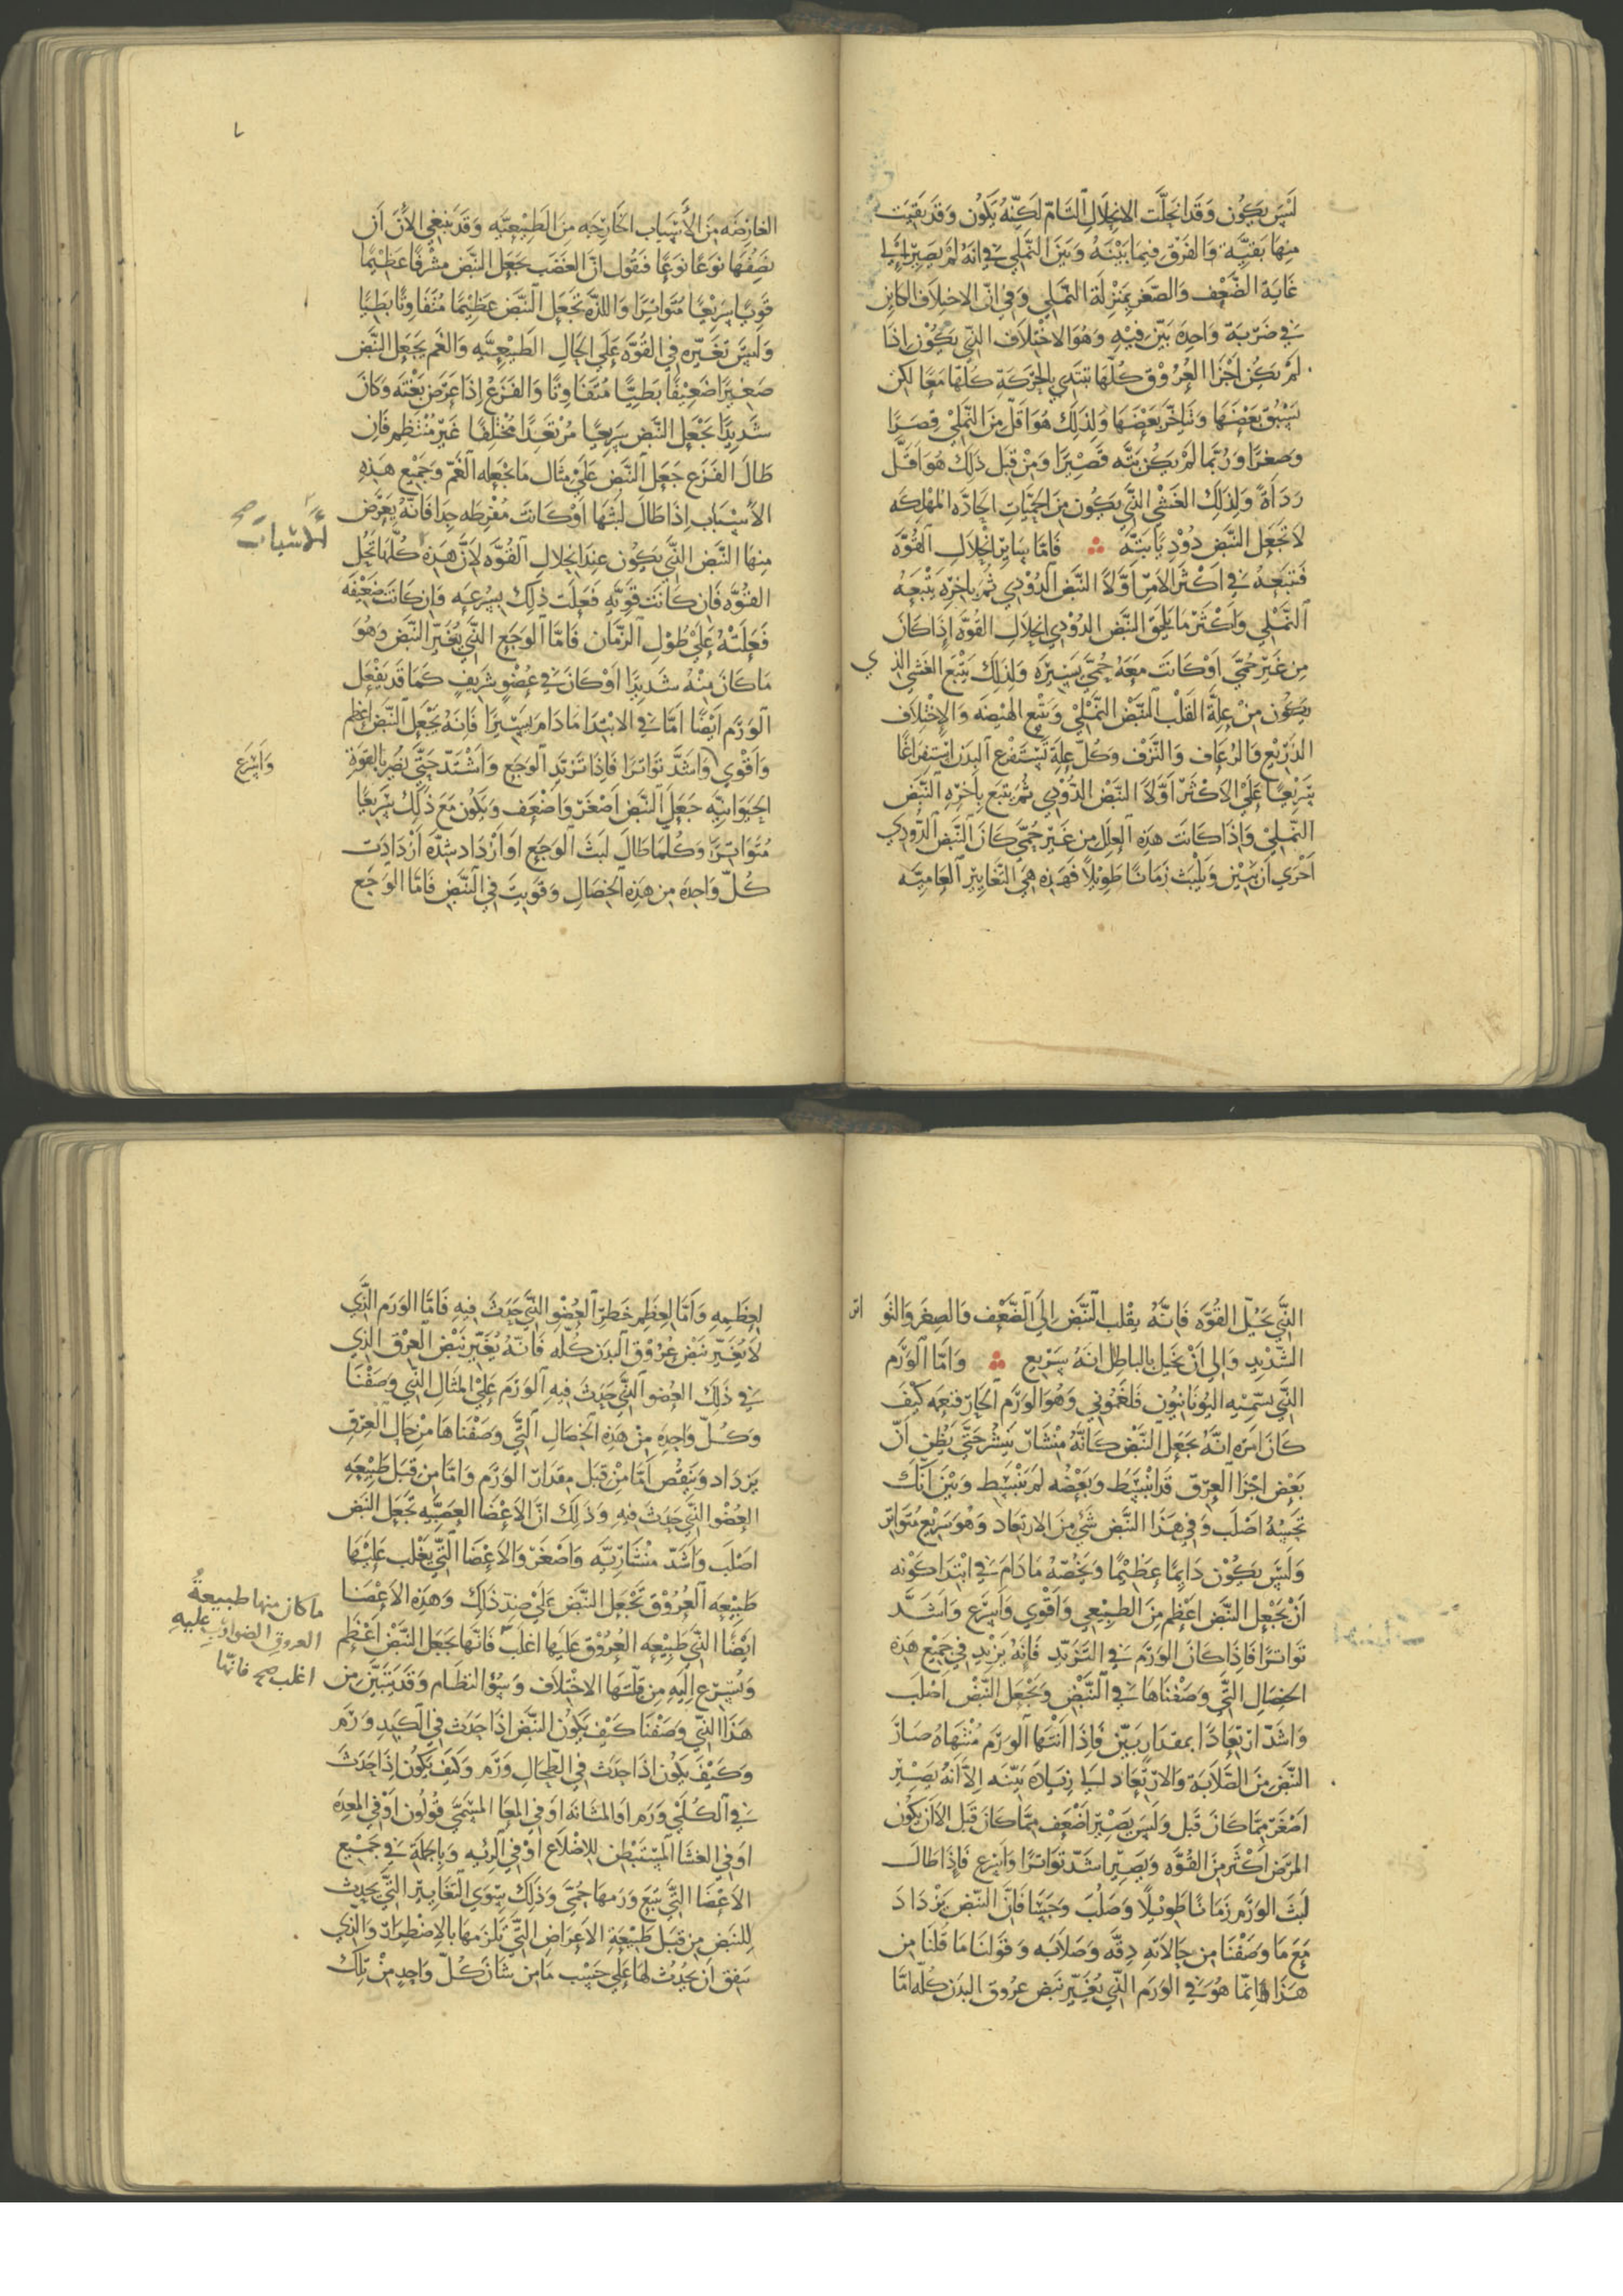 ليس يكون وقد انحلت الانحلال التام لكنه يكون وقد بقيت
منها بقيّة والفرق فيما بينه وبين النملي في انه لم يصير الي
غاية الضعف والصغر بمنزلة النملي وفي ان الاختلاف الكاين
في ضربة واحدة بيّن فيه وهو الاختلاف الذي يكون اذا
لم يكن اجزا العروق كلها تبتدي بالحركة كلها معا لكن
يسبق بعضها ويتاخر بعضها ولذلك هو اقل من النملي قصرا
وصغرا وربما لم يكن بتّه قصيرا ومن قبل ذلك هو اقل
رداءة ولذلك الغشي الذي يكون من الحميات الحادّه المهلكه
لا تجعل النبض دوديا بتّه فاما ساير انحلال القوّه
فتبعه في اكثر الامر اوّلا النبض الدودي ثم باخره يتبعه
النملي واكثر ما يلحق النبض الدودي انحلال القوه اذا كان
من غير حمّي او كانت معه حمي يسيره ولذلك يتبع الغشي الذي
يكون من علة القلب النبض النملي ويتبع الهيضه والاختلاف
الذريع والرعاف والنزف وكل علة تستفرغ البدن استفراغا
سريعا علي الاكثر اوّلا النبض الدودي ثم يتبع باخره النبض
النملي واذا كانت هذه العلل من غير حمي كان النبض الدودي
احري ان يتبين ويلبث زمانا طويلا فهذه هي التغايير العاميّه
العارضه من الأسباب الخارجه من الطبيعيّه وقد ينبغي الان ان
نصفها نوعا نوعا فنقول ان الغضب يجعل النبض مشرفا عظيما
قويا سريعا متواترا واللذّة تجعل النبض عظيما متفاوتا بطيا
وليس تغيّره في القوّه علي الحال الطبيعيّه والغم يجعل النبض
صغيرا ضعيفا بطيّا متفاوتا والفزع اذا عرض بغته وكان
شديدا يجعل النبض سريعا مرتعدا مختلفا غير منتظم فان
طال الفزع جعل النبض علي مثال ما يجعله الغمّ وجميع هذه
الأسباب اذا طال لبثها او كانت مفرطه جدا فانه يعرض
الأسباب صح
منها النبض الذي يكون عند انحلال القوّه لان هذه كلها تحل
القوّه فان كانت قويّه فعلت ذلك بسرعه وان كانت ضعيفه
فعلته علي طول الزمان فاما الوجع الذي يغيّر النبض وهو
ما كان منه شديدا او كان في عضو شريف كما قد يفعل
الورم ايضا اما في الابتدا ما دام يسيرا فانه يجعل النبض اعظم
واقوي واشد تواترا فاذا تزيد الوجع واشتد حتي يضر بالقوة
واسرع
الحيوانيّه جعل النبض اصغر واضعف ويكون مع ذلك سريعا
متواترا وكلما طال لبث الوجع او ازداد شدّه ازدادت
كل واحده من هذه الخصال وقويت في النبض فاما الوجع
الذي يحل القوّه فانه يقلب النبض الي الضعف والصغر والتواتر
الشديد والي ان يخيل بالباطل انه سريع واما الورم
الذي يسمّيه اليونانيون فلغموني وهو الورم الحار فنعمه كيف
كان امره انه يجعل النبض كانه منشار ينشر حتي يظن ان
بعض اجزا العرق قد انبسط وبعضه لم ينبسط وبين انك
تحسه اصلب وفي هذا النبض شي من الارتعاد وهو سريع متواتر
وليس يكون دايما عظيما ويخصّه ما دام في ابتدا كونه
ان يجعل النبض اعظم من الطبيعي واقوي واسرع واشد
تواترا فاذا كان الورم في التزيد فانه يزيد في جميع هذه
الخصال التي وصفناها في النبض ويجعل النبض اصلب
واشد ارتعادا بمقدار بيّن فاذا انتها الورم منتهاه صار
النبض من الصلابة والارتعاد الي زيادة بيّنه الا انه يصير
اصغر مما كان قبل وليس يصير اضعف مما كان قبل الا ان يكون
المرض اكثر من القوّه ويصير اشد تواترا واسرع فاذا طال
لبث الورم زمانا طويلا وصلب وحسا فان النبض يزداد
مع ما وصفنا من حالاته دقه وصلابه وقولنا ما قلنا من
هذا انما هو في الورم الذي يغيّر نبض عروق البدن كله اما
لعظمه واما لعظم خطر العضو الذي حدث فيه فاما الورم الذي
لا يغيّر نبض عروق البدن كله فانه يغيّر نبض العرق الذي
في ذلك العضو الذي حدث فيه الورم علي المثال الذي وصفنا
وكل واحده من هذه الخصال التي وصفناها من حال العرق
يزداد وينقص اما من قبل مقدار الورم واما من قبل طبيعه
العضو الذي حدث فيه وذلك ان الاعضا العصبيّه تجعل النبض
اصلب واشد منشاريّه واصغر والاعضا التي يغلب عليها
طبيعه العروق تجعل النبض علي ضد ذلك وهذه الاعضا
ايضا التي طبيعه العروق عليها اغلب فانها تجعل النبض اعظم
ما كان منها طبيعةُ
العروق الضوارب عليهِ
اغلب صح فانها
ويسرع اليه من قلتها الاختلاف وسؤ النظام وقد يتبيّن من
هذا الذي وصفنا كيف يكون النبض اذا حدث في الكبد ورم
وكيف يكون اذا حدث في الطحال ورم وكيف يكون اذا حدث
في الكلي ورم او المثانه او في المعا المسمّي قولون او في المعده
او في الغشا المستبطن للاضلاع او في الرئه وبالجملة في جميع
الاعضا التي يتبع ورمها حمّي وذلك سوي التغايير التي يحدث
للنبض من قبل طبيعة الاعراض التي تلزمها بالاضطرار والذي
يتفق ان يحدث لها علي حسب ما من شان كل واحد من تلك